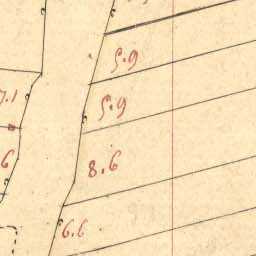 5.9
7.1
5.9
6
8.6
6.6